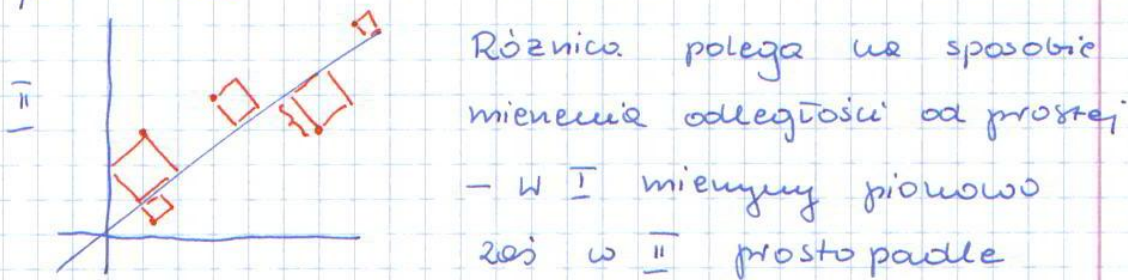 II
Różnica polega na sposobie
mierzenia odległości od prostej
- W I mierzymy pionowo
zaś w II prostopadle